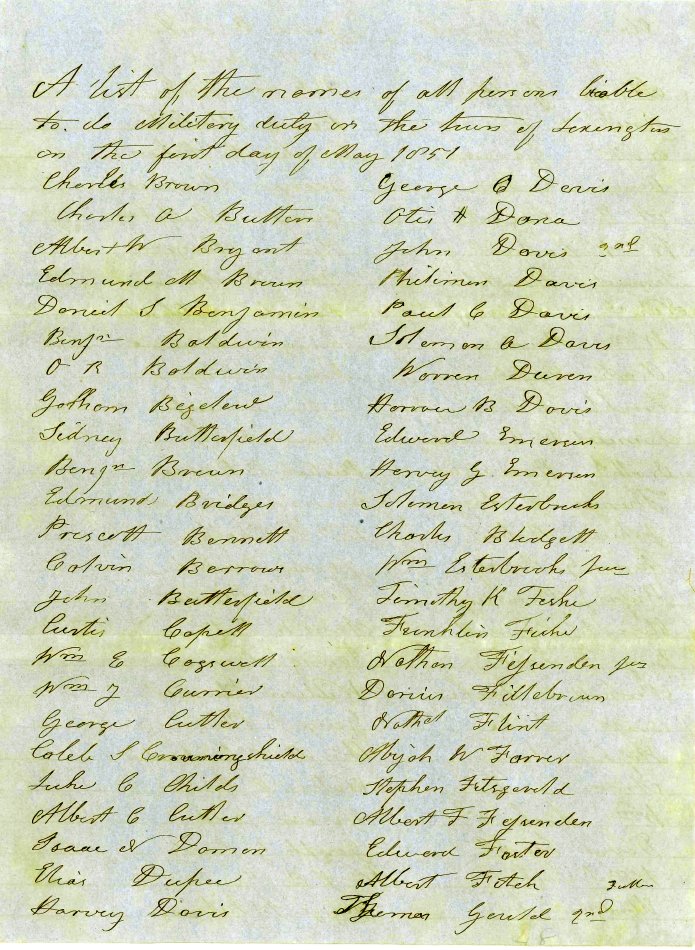 A list of the names of all persons liable
to do Military duty in the town of Lexington
on the first day of May 1851
Charles Brown
Charles A Butters
Albert W Bryant
Edmund M Brown
Daneil S Benjamin
Benjn Baldwin
O R Baldwin
Gotham Bigelow
Sidney Butterfield
Bengn Brown
Edmund Bridges
Prescott Bennett
Calvin Barrows
John Butterfield
Curtis Capell
Wm E Cogswell
Wm J Currier
George Cutler
Caleb S Crowningshield
Luke C Childs
Albert C Cutler
Isaac N Damon
Elias Dupee
Harvey Davis
George O Davis
Otis H Dana
John Davis 2nd
Philimon Davis
Paul C Davis
Solomon A Davis
Warren Duren
B Davis
Edward Emerson
Harvey G Emerson
Solomon Esterbrooks
Charles Blodgett
Wm Esterbrooks Jun
Timothy K Fiske
Franklin Fiske
Nathan Fessenden Jur
Darius Fillebrown
Nathal Flint
Abijah W Farrer
Stephen Fitsgerald
Albert F Fessenden
Edward Foster
Albert Fitch
Thomas Gould 2nd